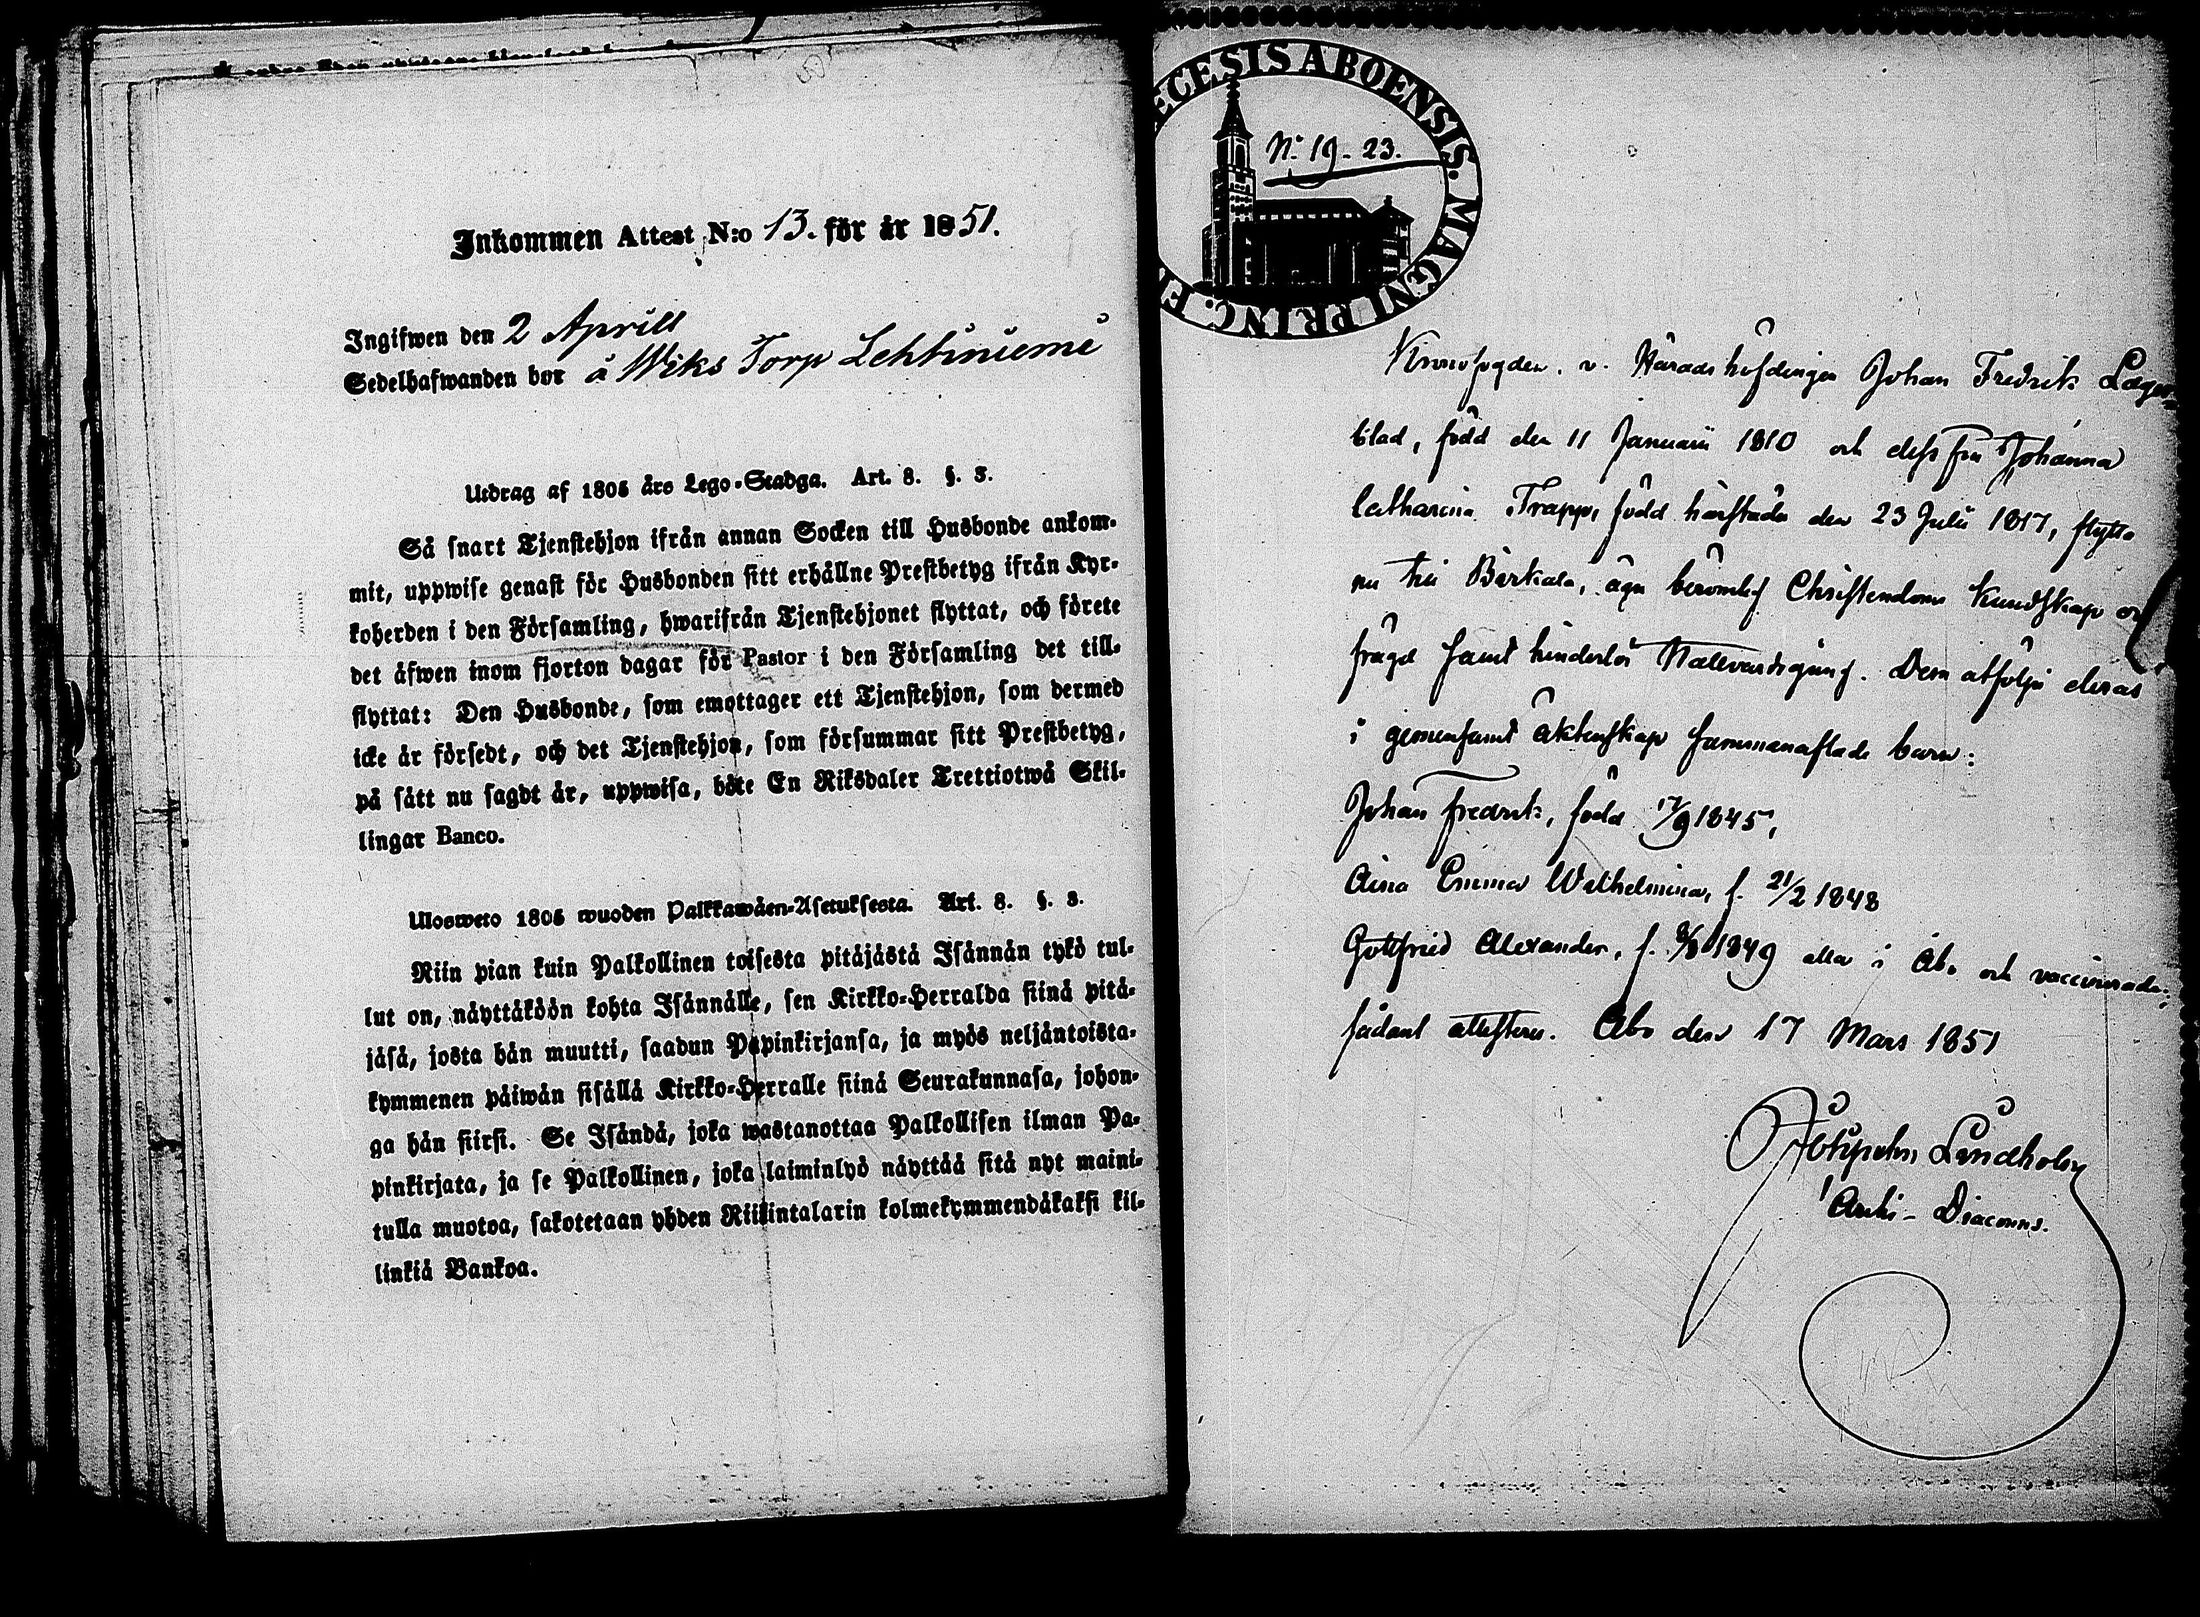 Inkommen Attest N:o 13. för år 1851.
Ingifwen den 2 Aprill
Sedelhafwanden bor å Wiks Torp Lehtiniemi
Utdrag af 1805 års Lego-Stadga. Art. 8. §. 3.
Så snart Tjenstehjon ifrån annan Socken till Husbonde ankom-
mit, uppwise genast för Husbonden sitt erhållne Prestbetyg ifrån Kyr-
koherden i den Församling, hwarifrån Tjenstehjonet flyttat, och förete
det äfwen inom fjorton dagar för Pastor i den Församling det till-
flyttat: Den Husbonde, som emottager ett Tjenstehjon, som dermed
icke är försedt, och det Tjenstehjon, som försummar sitt Prestbetyg,
på sätt nu sagdt är, uppwisa, böte En Riksdaler Trettiotwå Skil-
lingar Banco.
Ulosweto 1805 wuoden Palkkawäen-Asetuksesta. Art. 8. §. 3.
Niin pian kuin Palkollinen toisesta pitäjästä Isännän tykö tul-
lut on, näyttäköön kohta Isännälle, sen Kirkko-Herralda siinä pitä-
jäsä, josta hän muutti, saadun Papinkirjansa, ja myös neljäntoista-
kymmenen päiwän sisällä Kirkko-Herralle siinä Seurakunnasa, johon-
ga hän siirsi. Se Isändä, joka wastanottaa Palkollisen ilman Pa-
pinkirjata, ja se Palkollinen, joka laiminlyö näyttää sitä nyt maini-
tulla muotoa, sakotetaan yhden Riikintalarin kolmekymmendäkaksi kil-
linkiä Bankoa.
ECESIS ABOENSIS. MAGNI PRINC. F
N:o 19-23.
Kronofogden. v. Häradshöfdingen Johan Fredrik Lager-
blad, född den 11 Januarii 1810 och dess fru Johanna
Catharina Trapp, född härstädes den 23 Julii 1817, flytta
nu till Birkala, äga berömlig Christendoms kundskap oc
frägd samt hinderlös Nattvardsgång. Dem åtfölja deras
i gemensamt äktenskap sammanaflade barn:
Johan Fredrik, född 17/9 1845,
Aina Emma Wilhelmina, f. 21/2 1848
Gottfried Alexander, f. 1849 alla i Åbo och vaccinerade;
sådant attesteras. Åbo den 17 Mars 1851
Lindholm
Archi-Diaconus.